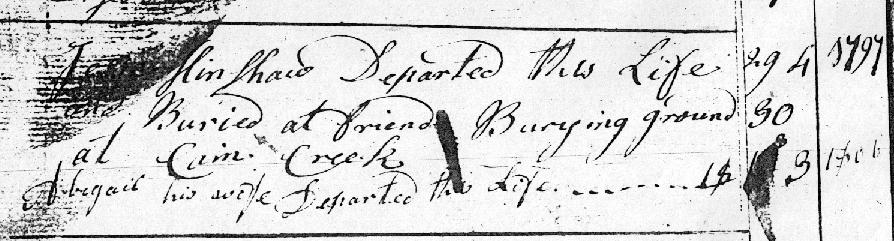 Hinshaw Departed this Life 29 4 1797
and Buried at friends Burying ground 30
at Cain Creek
Abigail his wife Departed this Life 3